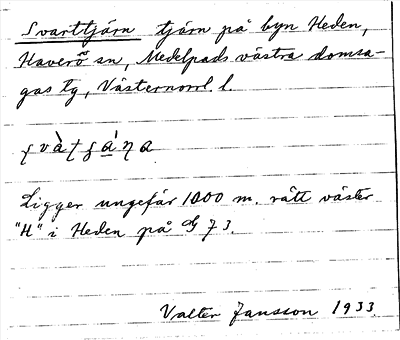 Svarttjärn tjärn på byn Heden,
Haverö sn, Medelpads västra domsa-
gas tg, Västernorrl. l.
Ligger ungefär 1000 m. rätt väster
"H" i Heden på G 73.
Valter Jansson 1933